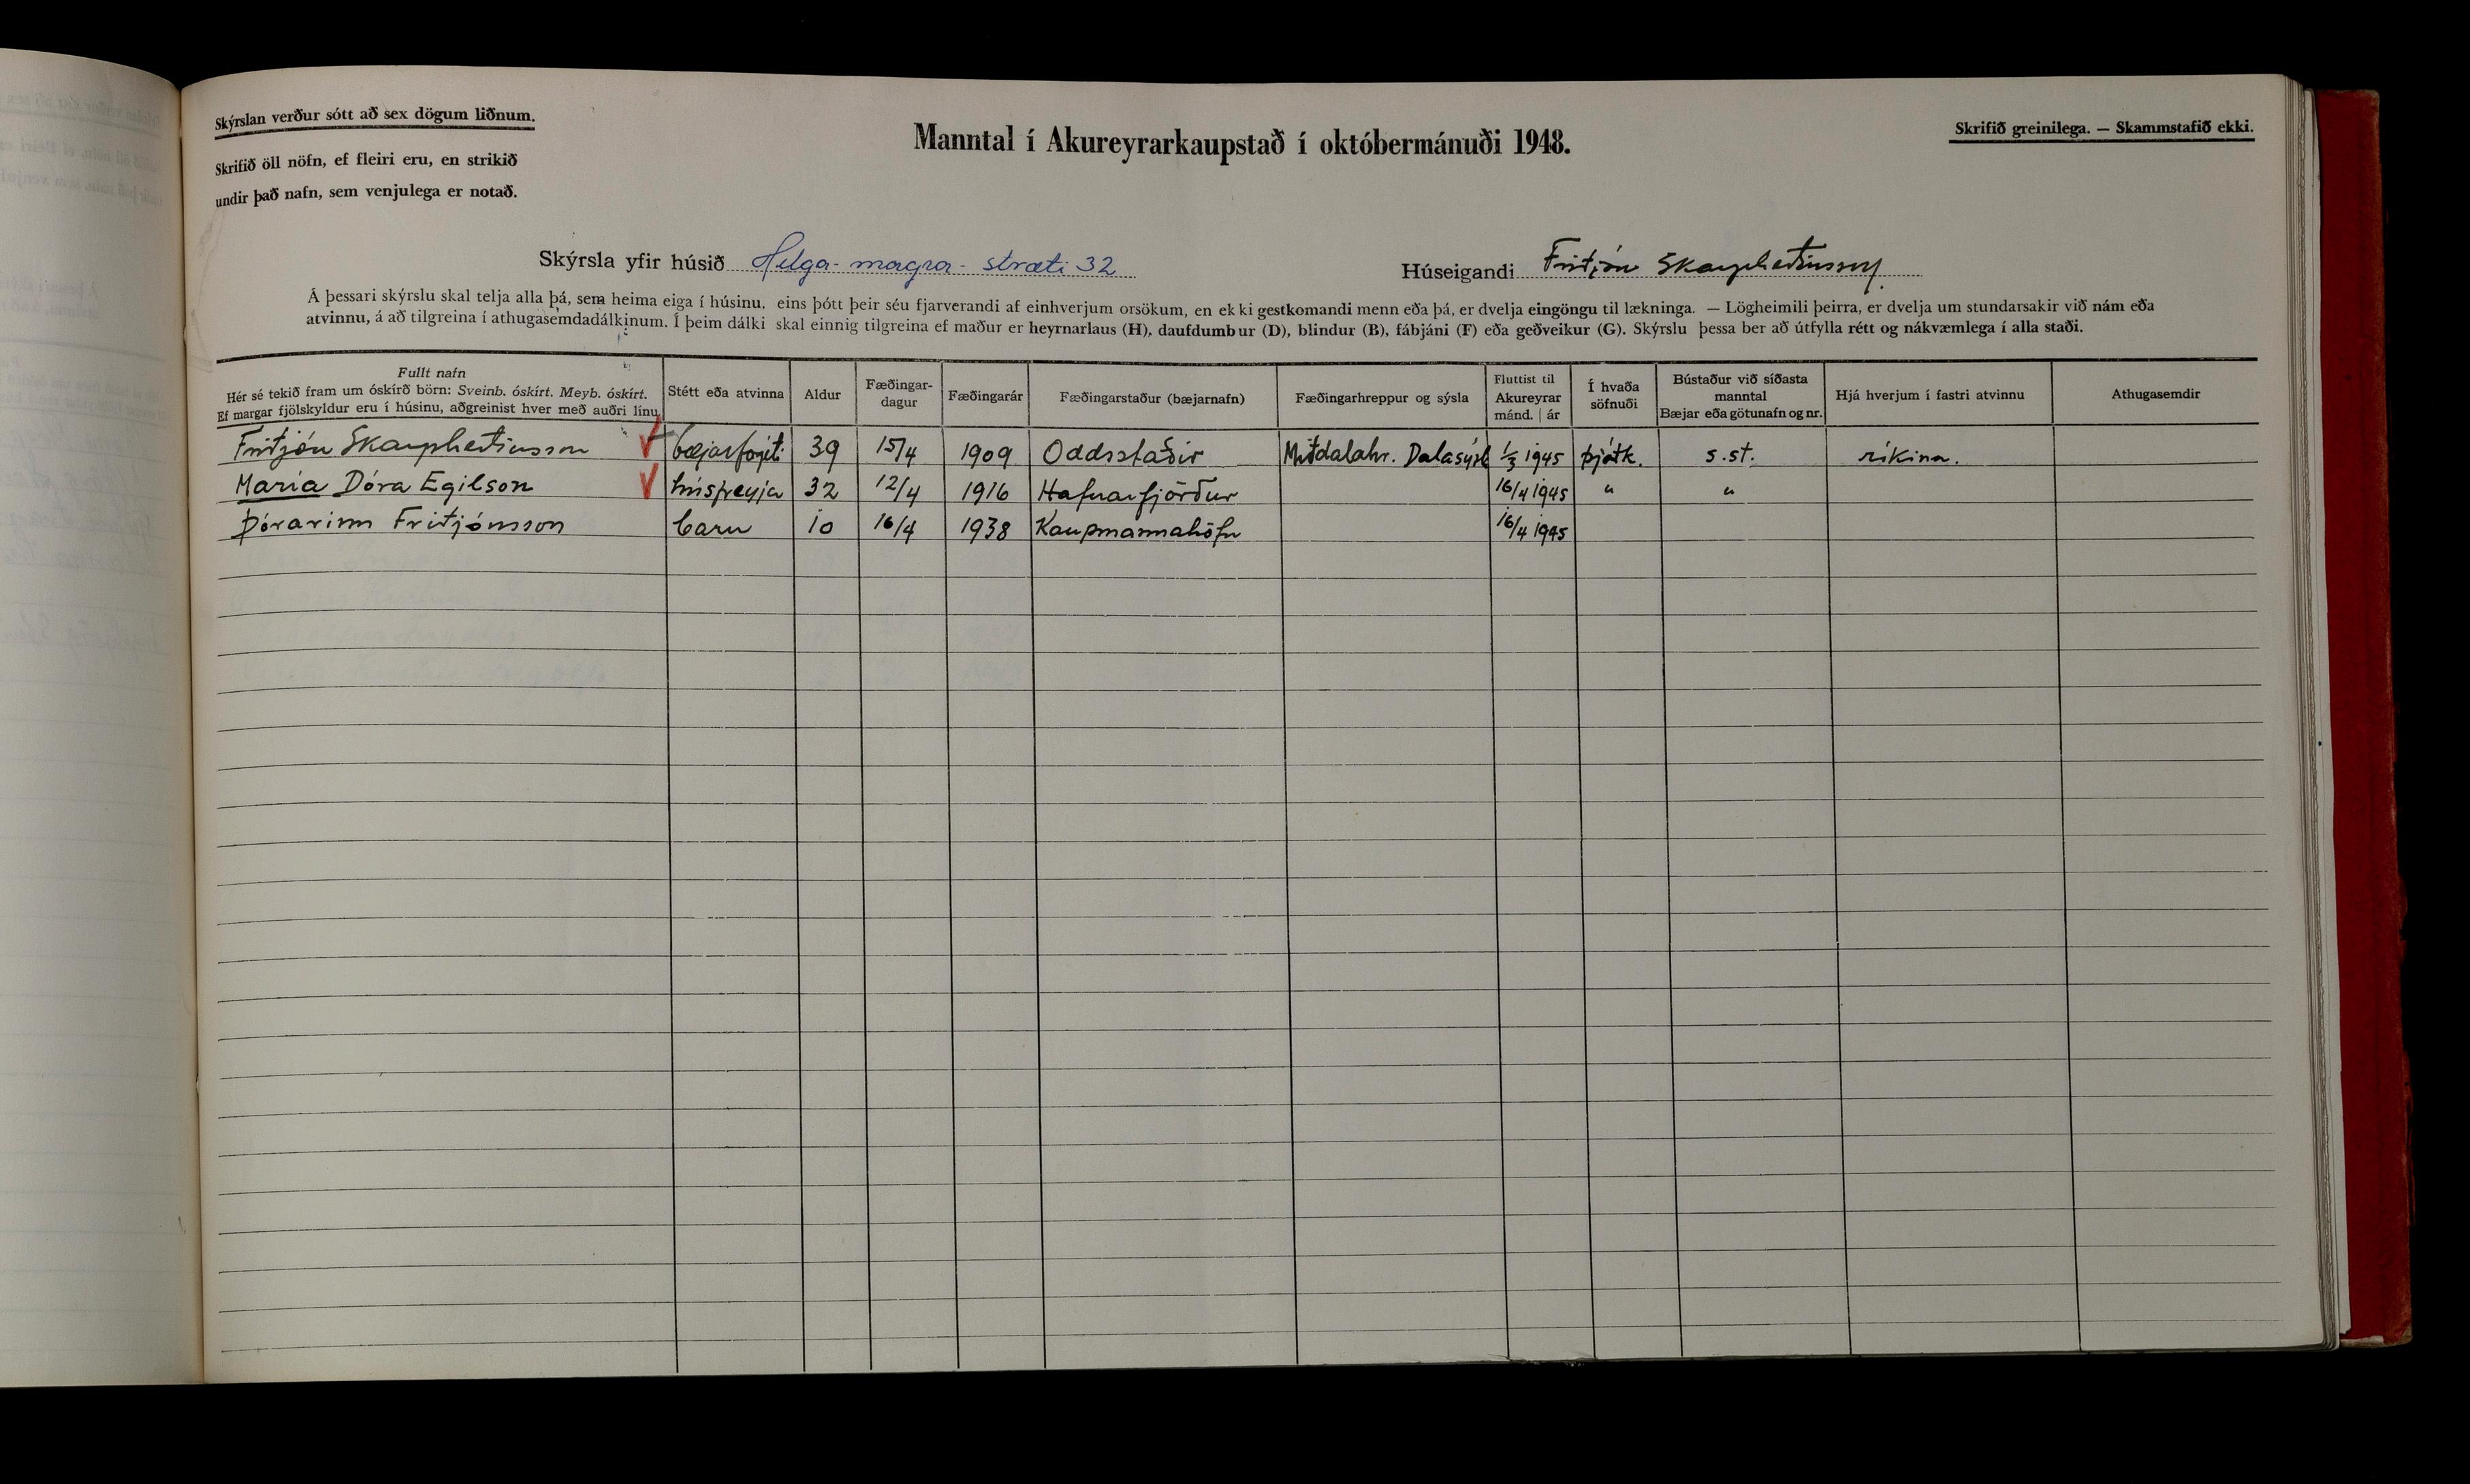 Skýrslan verður sótt að sex dögum liðnum.
Skrifið öll nöfn, ef fleiri eru, en strikið
undir það nafn, sem venjulega er notað.
Manntal í Akureyrarkaupstað í októbermánuði 1948.
Skrifið greinilega. — Skammstafið ekki.
Skýrsla yfir húsið Helga-magra-stræti 32 Húseigandi Friðjón Skarphéðinsson.
Á þessari skýrslu skal telja alla þá, sem heima eiga í húsinu, eins þótt þeir séu fjarverandi af einhverjum orsökum, en ekki gestkomandi menn eða þá, er dvelja eingöngu til lækninga. — Lögheimili þeirra, er dvelja um stundarsakir við nám eða
atvinnu, á að tilgreina í athugasemdadálkinum. Í þeim dálki skal einnig tilgreina ef maður er heyrnarlaus (H), daufdumbur (D), blindur (B), fábjáni (F) eða geðveikur (G). Skýrslu þessa ber að útfylla rétt og nákvæmlega í alla staði.
Fullt nafn
Hér sé tekið fram um óskírð börn: Sveinb. óskírt. Meyb. óskírt.
Ef margar fjölskyldur eru í húsinu, aðgreinist hver með auðri línu
Stétt eða atvinna
Aldur
Fæðingar-
dagur
Fæðingarár
Fæðingarstaður (bæjarnafn)
Fæðingarhreppur og sýsla
Fluttist til
Akureyrar
mánd. | ár
Í hvaða
söfnuði
Bústaður við síðasta
manntal
Bæjar eða götunafn og nr.
Hjá hverjum í fastri atvinnu
Athugasemdir
Friðjón Skarphéðinsson bæjarfógeti 39 15/4 1909 Oddsstaðir Miðdalahr. Dalasýsl 1/3 1945 þjóðk. s.st. ríkinu.
María Dóra Egilson húsfreyja 32 12/4 1916 Hafnarfjörður 16/4 1945 " "
Þórarinn Friðjónsson barn 10 16/4 1938 Kaupmannahöfn 16/4 1945